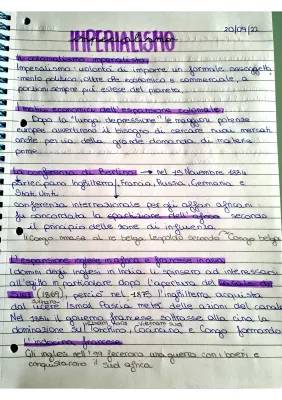 20/09/23
IMPERIALISMO
Il colonialismo imperialista
Imperialismo: volontà di imporre un formale assoggetta
mento politico, oltre che economico e commerciale, a
porzioni sempre più estese del pianeta.
I motivi economici dell'espansione coloniale
Dopo la "lunga depressione" le maggiori potenze
europee avvertirono il bisogno di cercare nuovi mercati
anche per via della grande domanda di materie
prime.
La conferenza di Berlino → nel 15 Novembre 1884
parteciparono Inghilterra, Francia, Russia, Germania e
Stati Uniti
conferenza internazionale per gli affari africani
fu concordata la spartizione dell'Africa secondo
il principio delle zone di influenza
Il Congo rimase al re belga Leopoldo secondo Congo belga
L'espansione inglese in Africa e francese in Asia
I domini degli inglesi in India li spinsero ad interessarsi
all'Egitto in particolare dopo l'apertura del canale di
Suez (1869), perciò nel 1875 l'Inghilterra acquista
dal Pascià metà delle azioni del canale
Nel 1884 il governo francese sottrasse alla Cina la
dominazione sul Tonchino, Cocincina e Congo formando
l'Indocina francese
Gli inglesi nell' fecero una guerra con i boeri e
conquistarono il sud africa